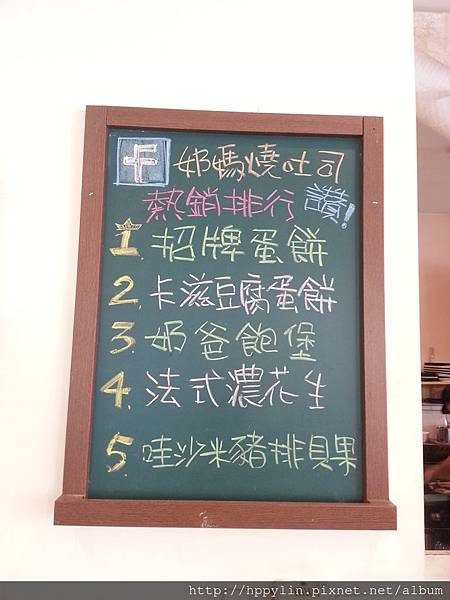 卡 奶媽燒吐司
熱銷排行 讚!
1. 招牌蛋餅
2. 卡滋豆腐蛋餅
3. 奶爸飽堡
4. 法式濃花生
5. 哇沙米豬排貝果
http://hppylin.pixnet.net/album